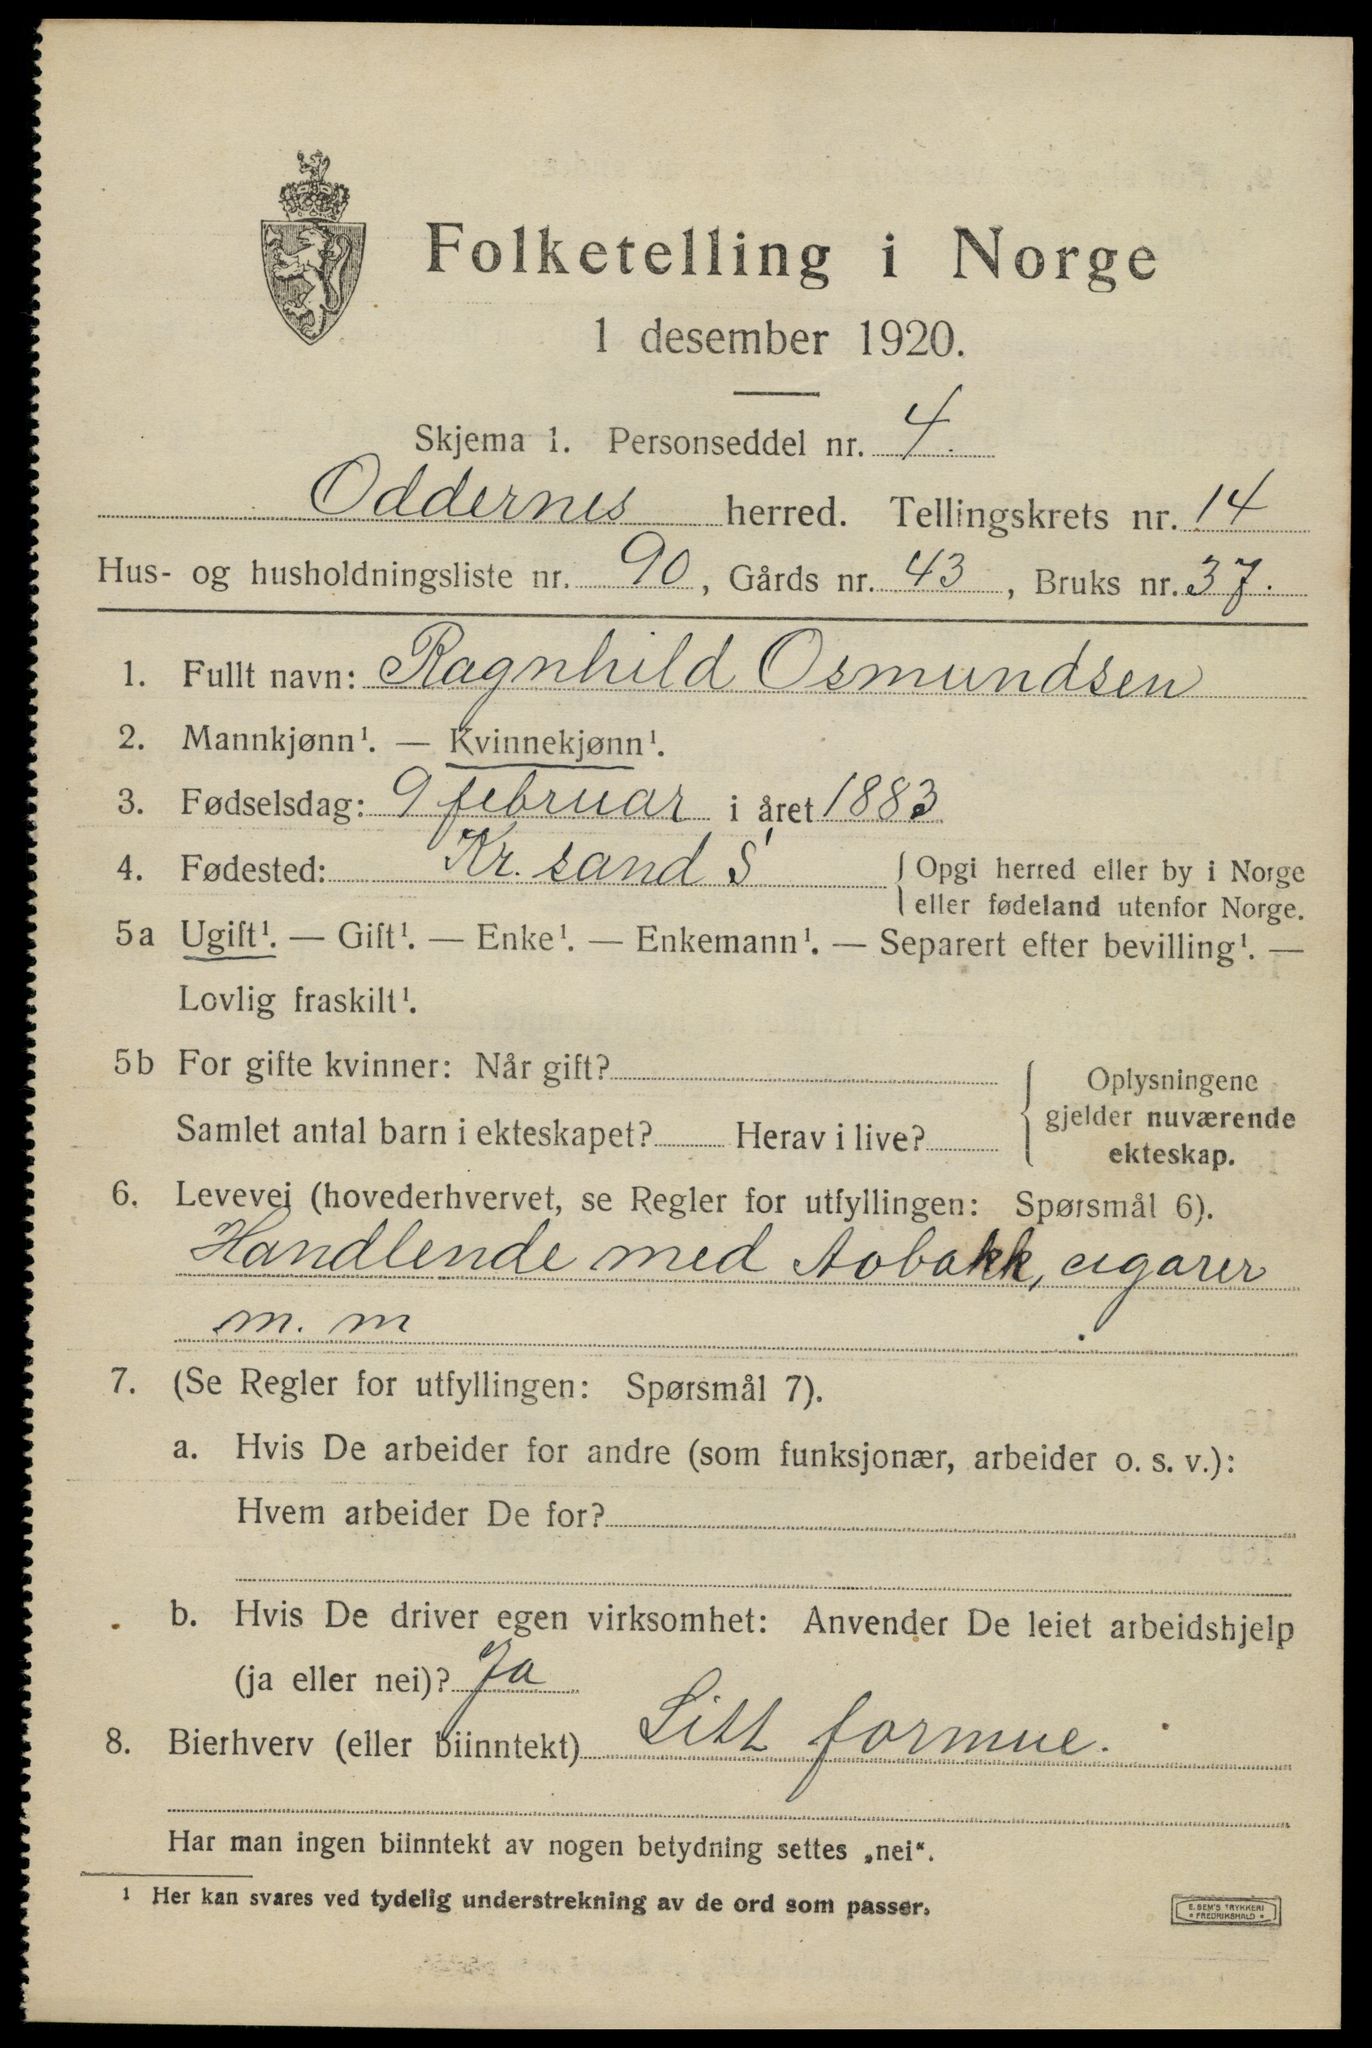 Folketelling i Norge
1 desember 1920.
Skjema 1. Personseddel nr. 4.
Oddernes herred. Tellingskrets nr. 14
Hus- og husholdningsliste nr. 90, Gårds nr. 43, Bruks nr. 37.
1. Fullt navn: Ragnhild Osmundsen
2. Mannkjønn¹. — Kvinnekjønn¹.
3. Fødselsdag: 9 februar i året 1883
4. Fødested: Kr. sand S { Opgi herred eller by i Norge
eller fødeland utenfor Norge.
5a Ugift¹. — Gift¹. — Enke¹. — Enkemann¹. — Separert efter bevilling¹. —
Lovlig fraskilt¹.
5b For gifte kvinner: Når gift?
Samlet antal barn i ekteskapet? Herav i live?
{ Oplysningene
gjelder nuværende
ekteskap.
6. Levevei (hovederhvervet, se Regler for utfyllingen: Spørsmål 6).
Handlende med Tobakk, cigarer
m. m
7. (Se Regler for utfyllingen: Spørsmål 7).
a. Hvis De arbeider for andre (som funksjonær, arbeider o. s. v.):
Hvem arbeider De for?
b. Hvis De driver egen virksomhet: Anvender De leiet arbeidshjelp
(ja eller nei)? Ja
8. Bierhverv (eller biinntekt) Litt formue.
Har man ingen biinntekt av nogen betydning settes „nei“.
1 Her kan svares ved tydelig understrekning av de ord som passer.
E. SEM'S TRYKKERI
FREDRIKSHALD